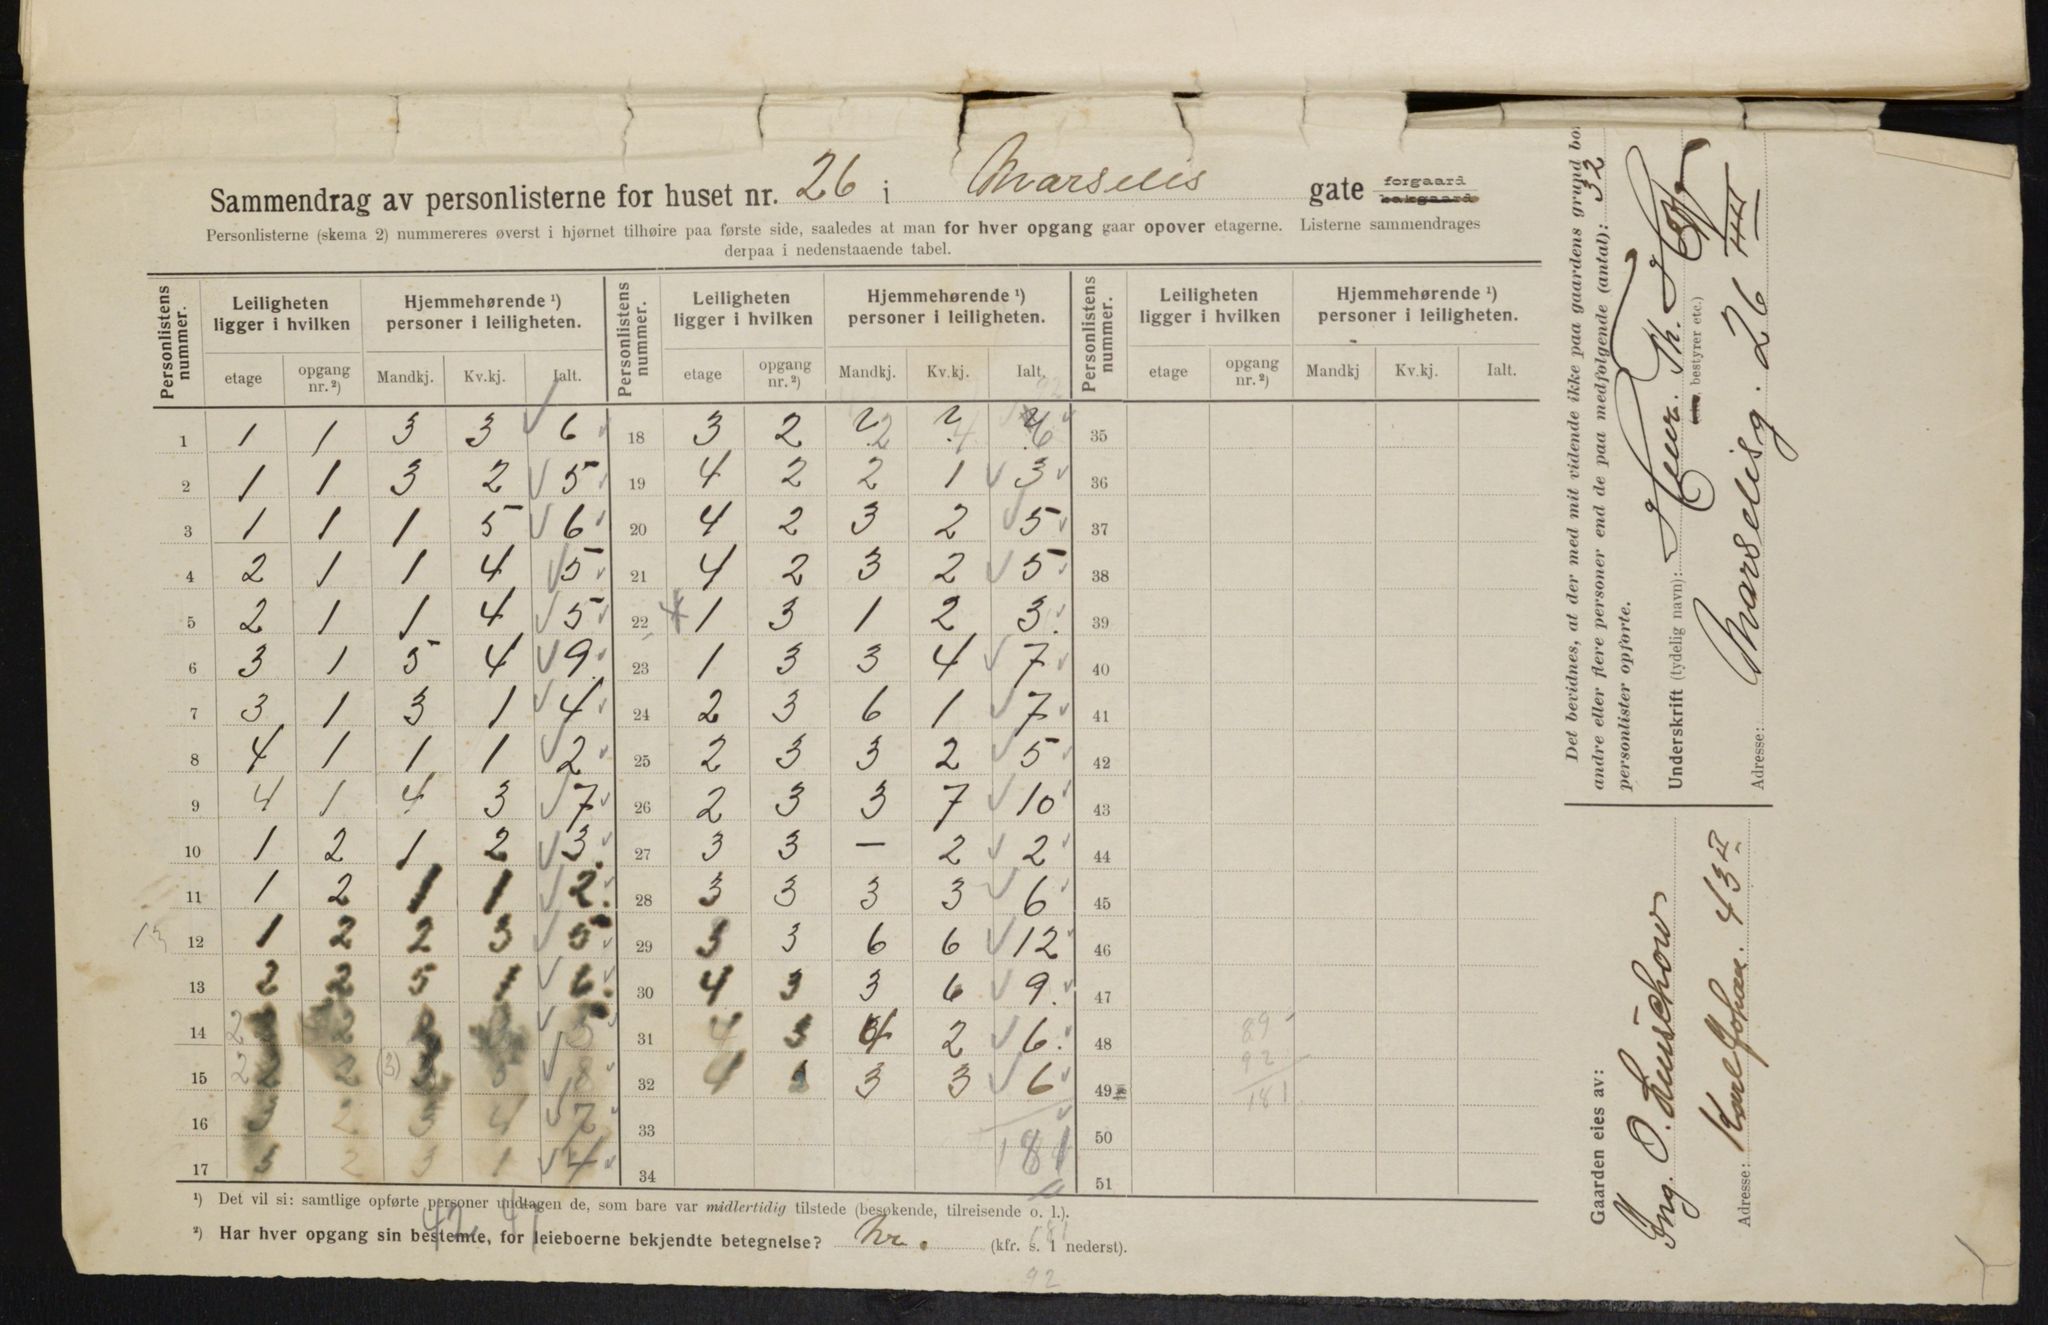 Sammendrag av personlisterne for huset nr. 26 i Marselis gate forgaard bakgaard
Personlisterne (skema 2) nummereres øverst i hjørnet tilhøire paa første side, saaledes at man for hver opgang gaar opover etagerne. Listerne sammendrages
derpaa i nedenstaaende tabel.
Personlistens nummer. Leiligheten ligger i hvilken Hjemmehørende ¹) personer i leiligheten. Personlistens nummer. Leiligheten ligger i hvilken Hjemmehørende ¹) personer i leiligheten. Personlistens nummer. Leiligheten ligger i hvilken Hjemmehørende ¹) personer i leiligheten.
etage opgang nr. ²) Mandkj. Kv.kj. Ialt. etage opgang nr. ²) Mandkj. Kv.kj. Ialt. etage opgang nr. ²) Mandkj Kv.kj. Ialt.
1 1 1 3 3 6 18 3 2 2 4 6 35
2 1 1 3 2 5 19 4 2 2 1 3 36
3 1 1 1 5 6 20 4 2 3 2 5 37
4 2 1 1 4 5 21 4 2 3 2 5 38
5 2 1 1 4 5 22 1 3 1 2 3 39
6 3 1 5 4 9 23 1 3 3 4 7 40
7 3 1 3 1 4 24 2 3 6 1 7 41
8 4 1 1 1 2 25 2 3 3 2 5 42
9 4 1 4 3 7 26 2 3 3 7 10 43
10 1 2 1 2 3 27 3 3 — 2 2 44
11 1 2 1 1 2 28 3 3 3 3 6 45
12 1 2 2 3 5 29 3 3 6 6 12 46
13 2 2 5 1 6 30 4 3 3 6 9 47
14 2 2 5 31 4 3 4 2 6 48 89
15 2 2 (3) 5 8 32 4 3 3 3 6 49 92
181
16 3 2 3 4 7 33 50
17 3 2 3 1 4 34 181 51
¹) Det vil si: samtlige opførte personer undtagen de, som bare var midlertidig tilstede (besøkende, tilreisende o. l.).
²) Har hver opgang sin bestemte, for leieboerne bekjendte betegnelse? Nr. (kfr. s. 1 nederst).
92
Det bevidnes, at der med mit vidende ikke paa gaardens grund bo
andre eller flere personer end de paa medfølgende (antal): 32
personlister opførte.
Underskrift (tydelig navn): Henr. Th.
bestyrer etc.)
Adresse: Marselisg. 26
Gaarden eies av:
Ing. O. Lenschow
Adresse: Karl Johan. 43 II